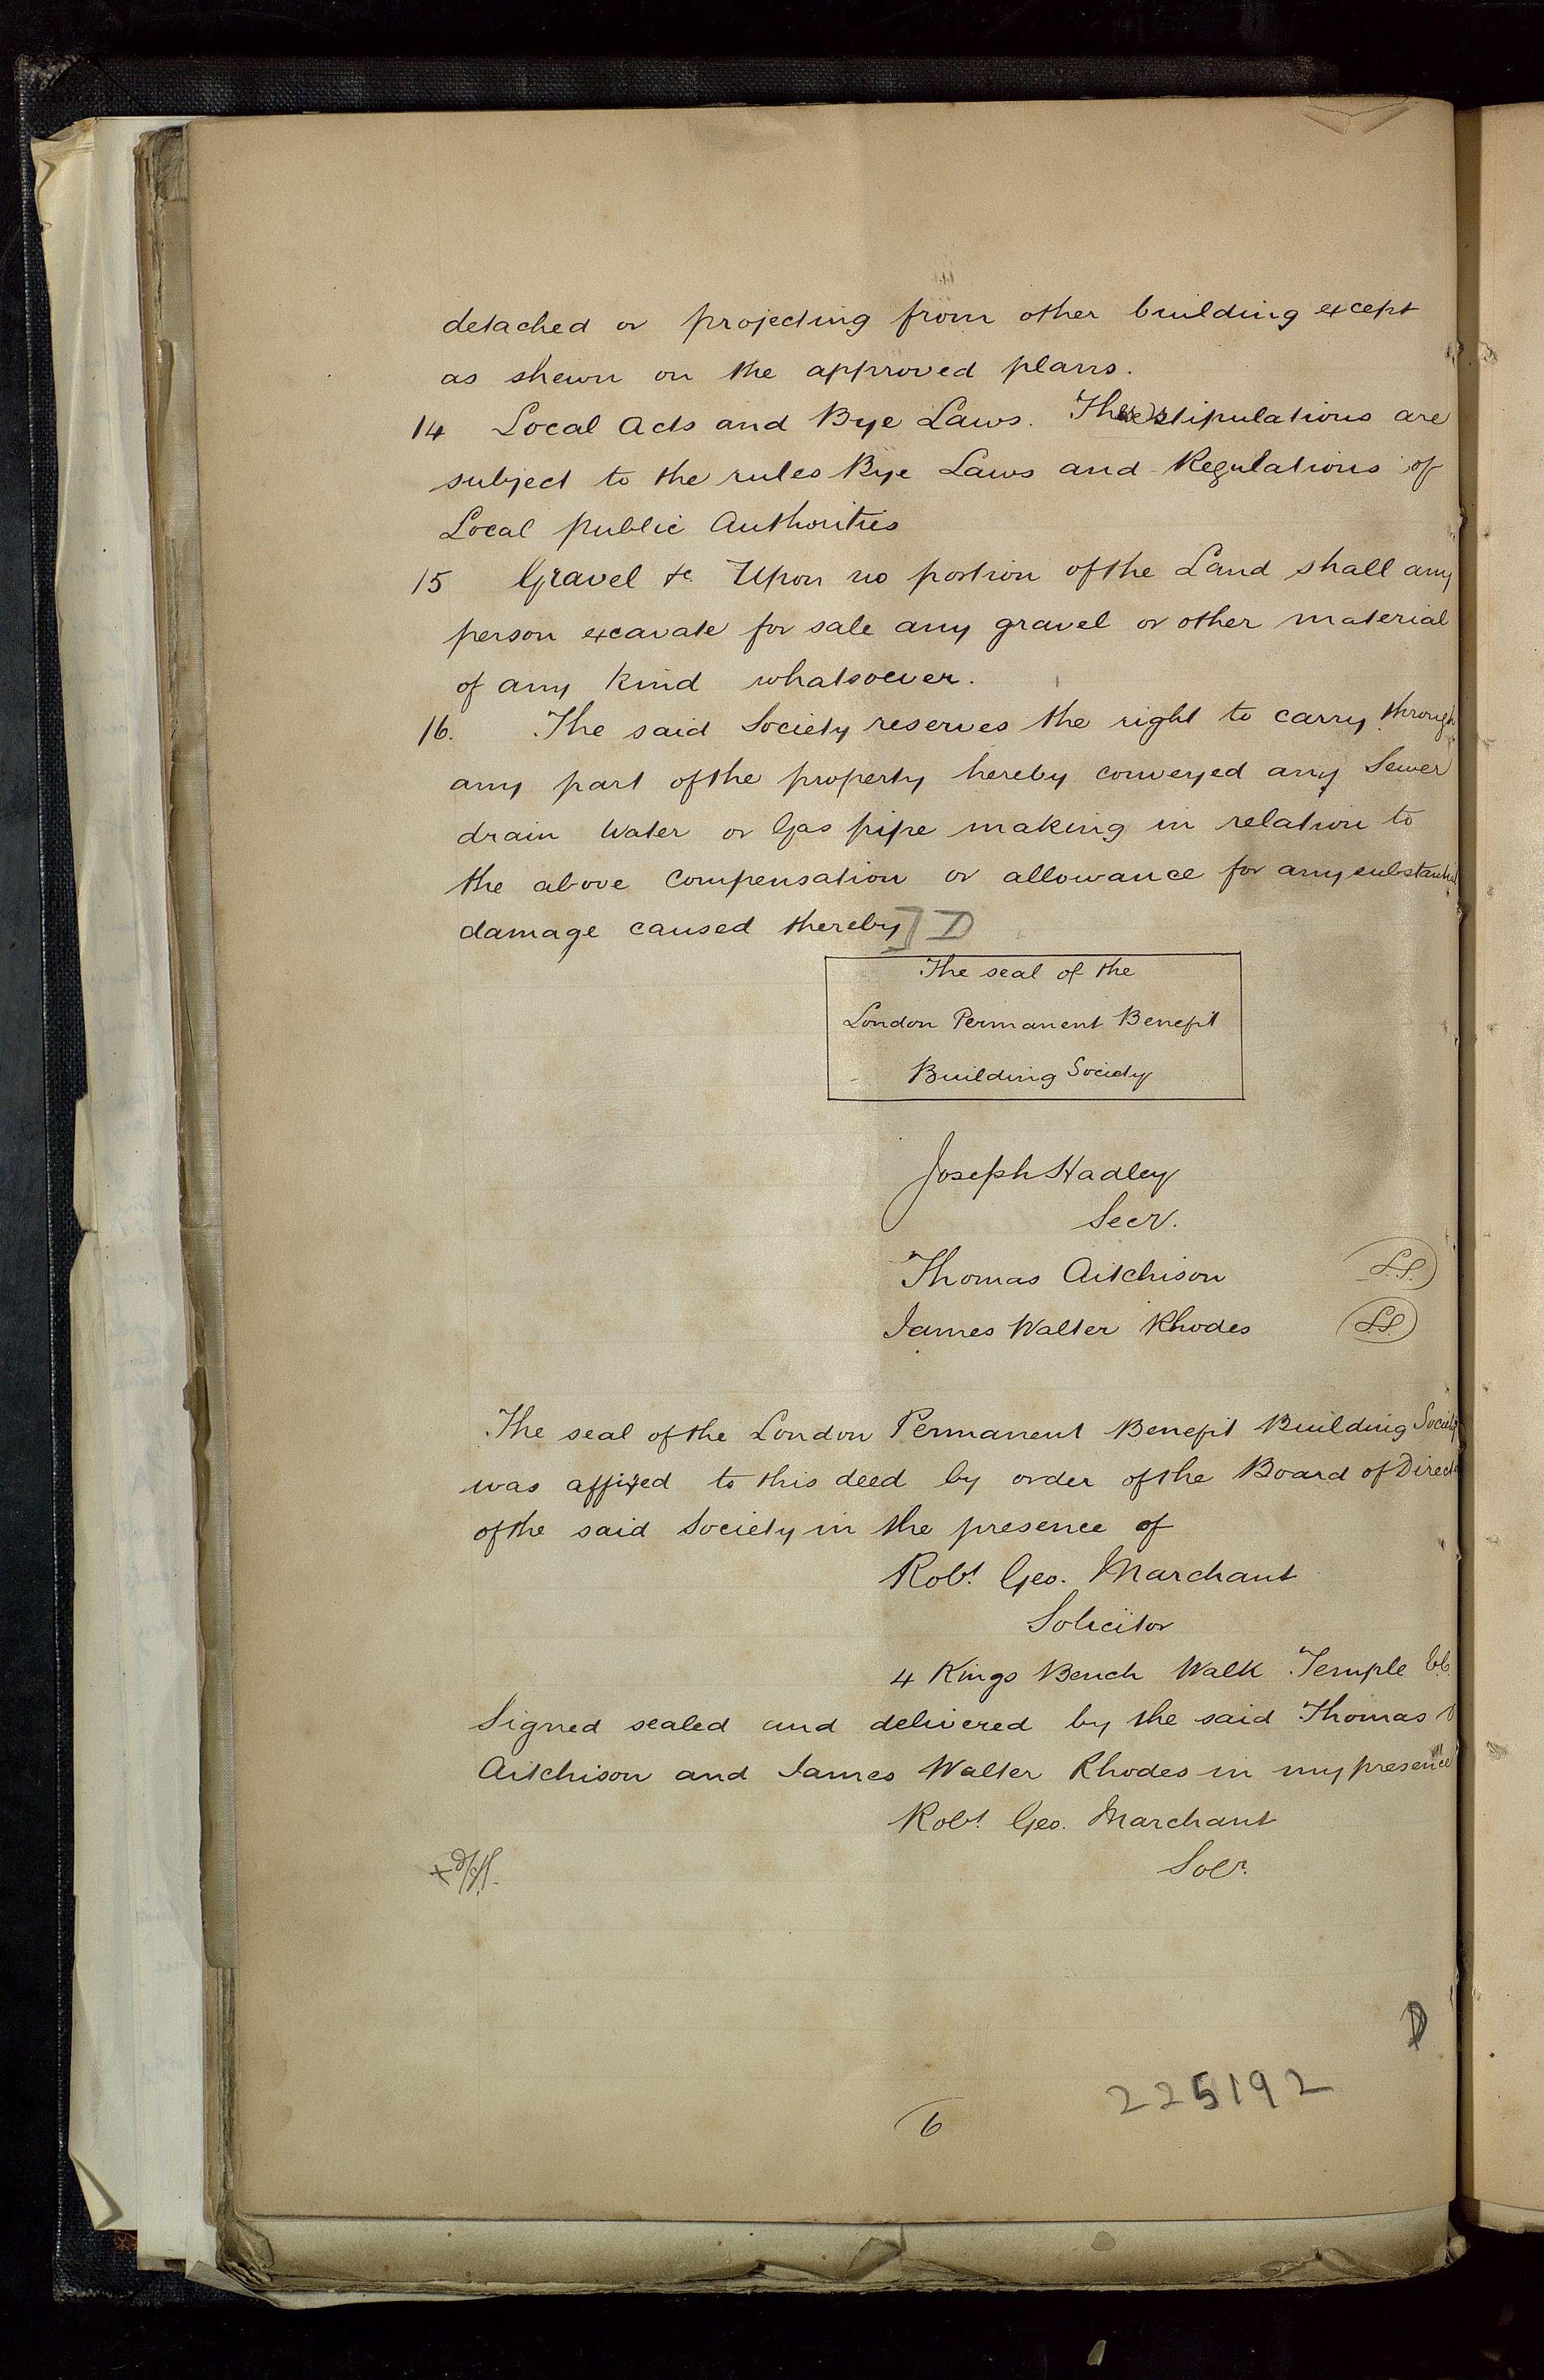 detached or projecting from other building except
as shewn on the approved plans.
14 Local Acts and Bye Laws. These stipulations are
subject to the rules Bye Laws and Regulations of
Local public Authorities
15 Gravel &c. Upon no portion of the Land shall any
person excavate for sale any gravel or other material
of any kind whatsoever.
16. The said Society reserves the right to carry through
any part of the property hereby conveyed any Sewer
drain Water or Gas pipe making in relation to
the above compensation or allowance for any substantial
damage caused thereby] D
The seal of the
London Permanent Benefit
Building Society
Joseph Hadley
Secy.
Thomas Aitchison L.S.
James Walter Rhodes L.S.
The seal of the London Permanent Benefit Building Society
was affixed to this deed by order of the Board of Direct
of the said Society in the presence of
Robt. Geo. Marchant
Solicitor
4 Kings Bench Walk Temple E.C.
Signed sealed and delivered by the said Thomas
Aitchison and James Walter Rhodes in my presence
Robt. Geo. Marchant
Solr.
D
225192
6